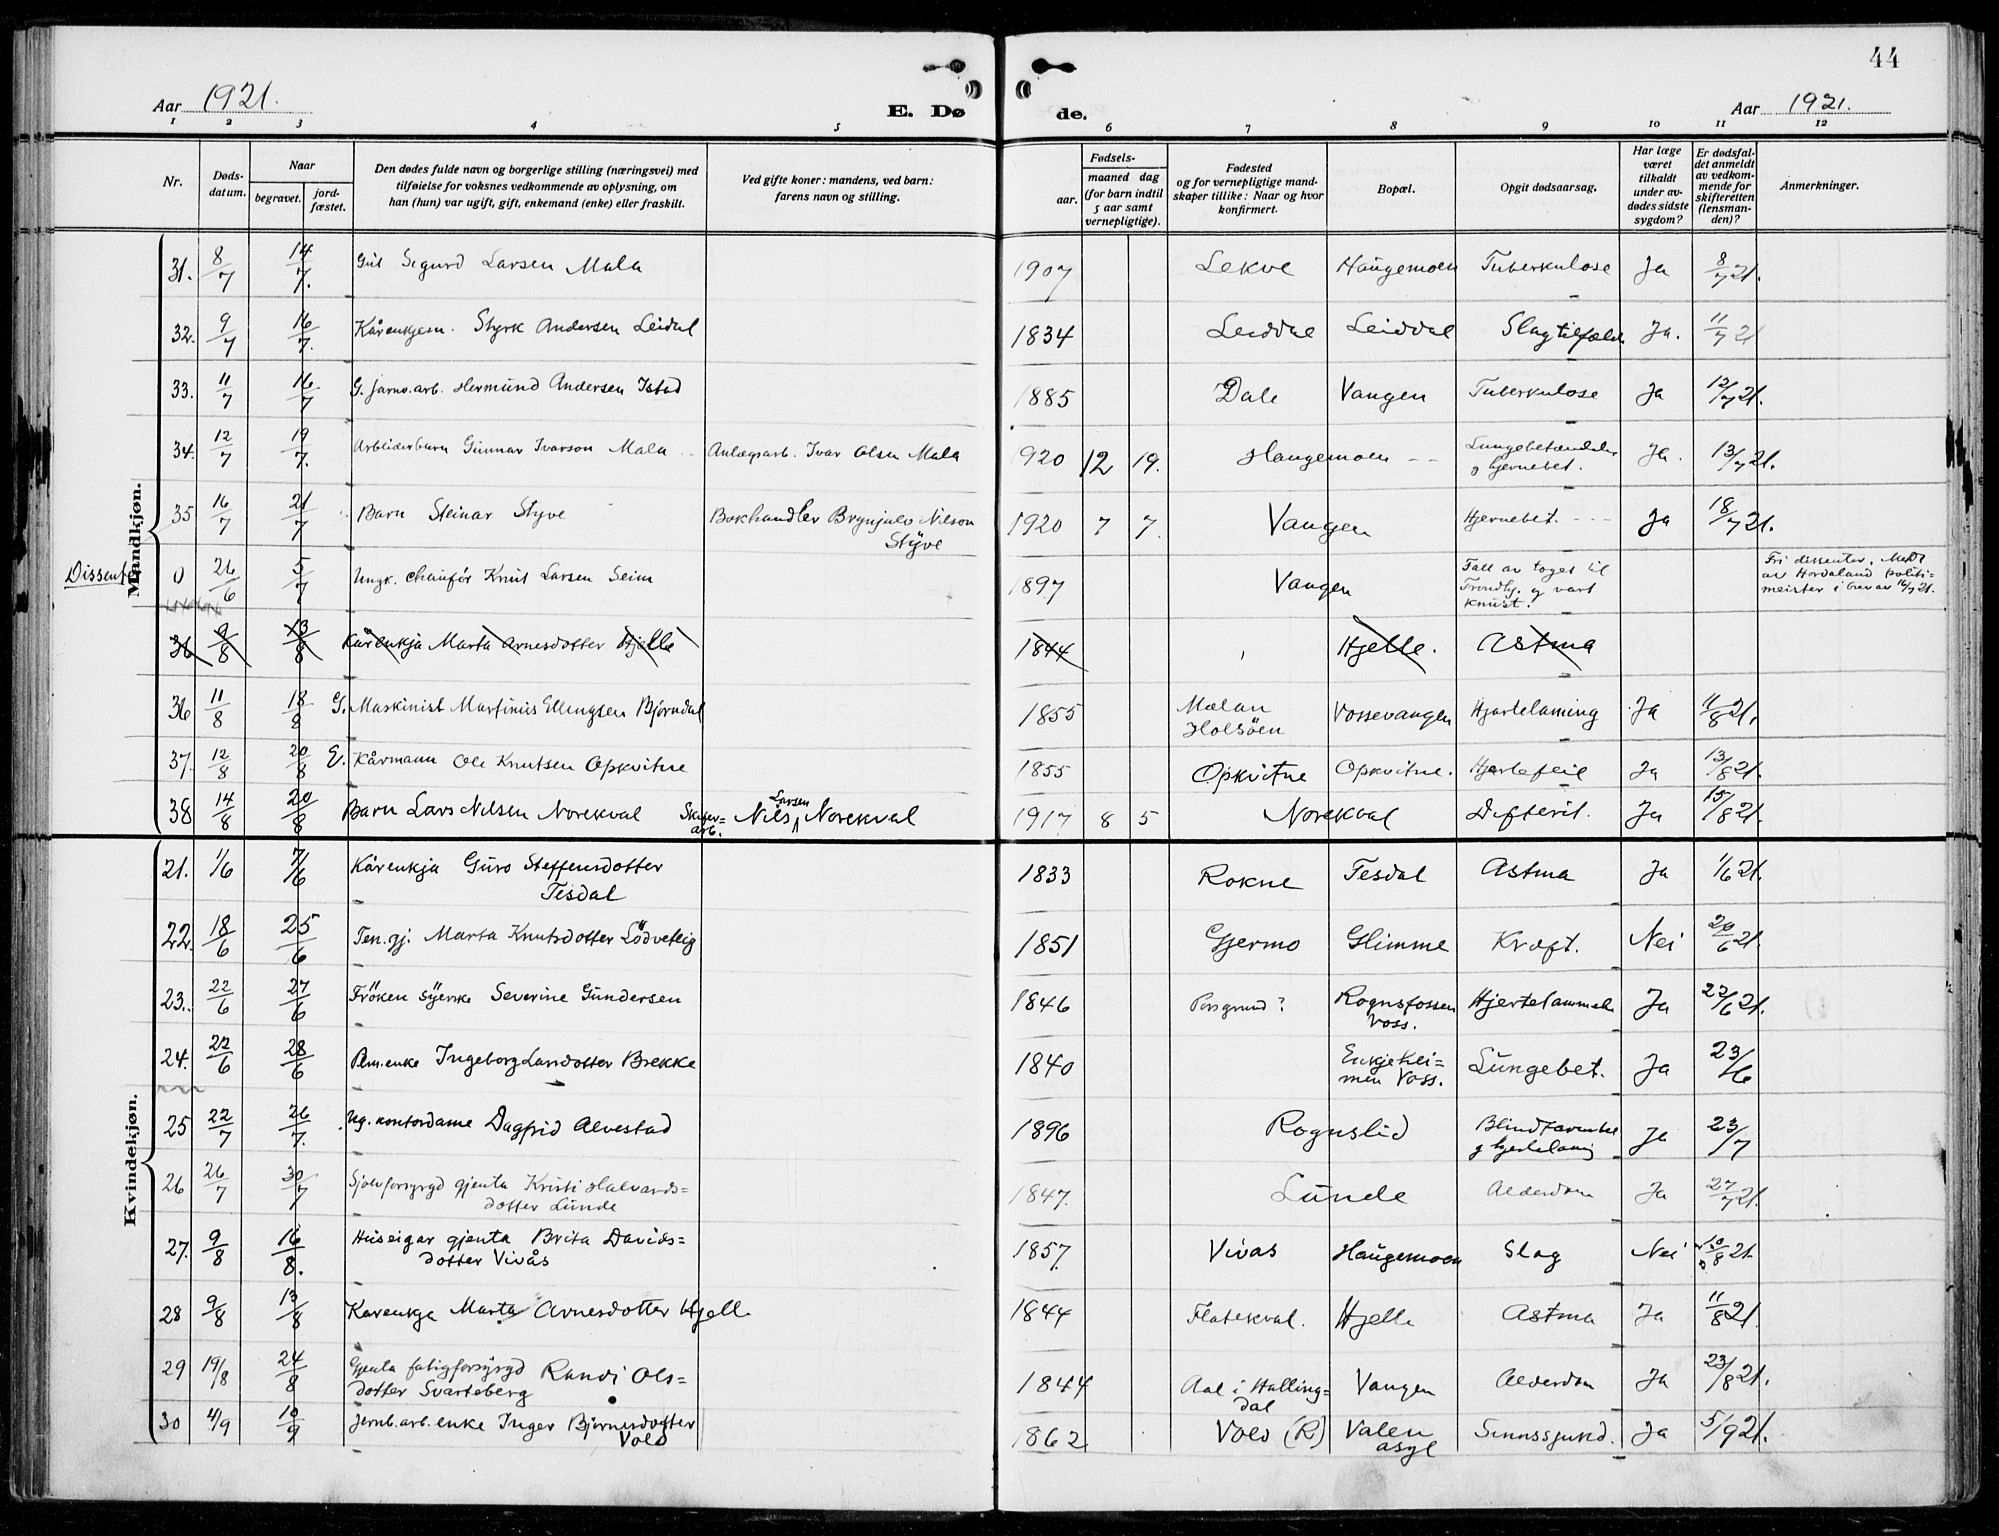 44
Aar 1921.
E. Dø de.
Aar 1921.
1 2 3 4 5 6 7 8 9 10 11 12
Nr.
Døds-
datum.
Naar
begravet.
jord-
fæstet.
Den dødes fulde navn og borgerlige stilling (næringsvei) med
tilføielse for voksnes vedkommende av oplysning, om
han (hun) var ugift, gift, enkemand (enke) eller fraskilt.
Ved gifte koner: mandens, ved barn:
farens navn og stilling.
Fødsels-
aar.
maaned dag
(for barn indtil
5 aar samt
vernepligtige).
Fødested
og for vernepligtige mand-
skaper tillike: Naar og hvor
konfirmert.
Bopæl.
Opgit dødsaarsag.
Har læge
været
tilkaldt
under av-
dødes sidste
sygdom?
Er dødsfal-
det anmeldt
av vedkom-
mende for
skifteretten
(lensman-
den)?
Anmerkninger.
Mandkjøn.
31. 8/7 14/7. Gut Sigurd Larsen Mala 1907 Lekve Haugemoen Tuberkulose Ja 8/7 21.
32. 9/7 16/7. Kårenkjem. Styrk Andersen Leidal 1834 Leiddal Leiddal Slagtilfælde Ja. 11/7 21
33. 11/7 16/7 G. jarnv.arb. Hermund Andersen Istad 1885 Dale Vangen Tuberkulose Ja 12/7 21.
34. 12/7 19/7. Arbeiderbarn Gunnar Ivarson Mala Anlægsarb. Ivar Olsen Mala 1920 12 19. Haugemoen Lungebetændelse
og hjernebet. Ja. 13/7 21.
35 16/7 21/7 Barn Steinar Styve Bokhandler Brynjulv Nilson
Styve 1920 7 7. Vangen Hjernebet. Ja 18/7 21.
Dissenter 0 26/6 5/7 Ungk. chaufør Knut Larsen Seim 1897 Vangen Fall av toget til
Trondhj. og vart
knust. Fri dissenter. Meldt
av Hordaland politi-
meister i brev av 16/7 21.
36 9/8 13/8 Kårenkja Marta Arnesdotter Hjelle 1844 Hjelle. Astma
36 11/8 18/8 G. Maskinist Martinius Ellingsen Bjørndal 1855 Malan
Holsöen Vossevangen Hjartelaming Ja 11/8 21.
37. 12/8 20/8 E. Kårmann Ole Knutsen Opkvitne 1855 Opkvitne Opkvitne. Hjertefeil Ja 13/8 21.
38 14/8 20/8 Barn Lars Nilsen Norekval Skifer-
arb. Nils Larsen Norekval 1917 8 5 Norekval Difterit. Ja 15/8 21.
Kvindekjøn.
21. 1/6 7/6 Kårenkja Guro Steffensdotter
Tesdal 1833 Rokne Tesdal Astma Ja 1/6 21.
22. 18/6 25/6 Ten.gj. Marta Knutsdotter Lödvetlig 1851 Gjermo Glimme Kræft. Nei 20/6 21.
23. 22/6 27/6 Fröken Syerske Severine Gundersen 1846 Porsgrund? Rognsfossen
Voss. Hjertelammelse Ja 22/6 21.
24. 22/6 28/6 Pens.enke Ingeborg Larsdotter Brekke 1840 Enkjehei-
men Voss. Lungebet. Ja 23/6
25 22/7 26/7. Ug. kontordame Dagfrid Alvestad 1896 Rognslid Blindtarmbet
og hjertelaming Ja 23/7
26 26/7 30/7 Sjolvforsyrgd gjenta Kristi Halvards-
dotter Lunde 1847. Lunde Alderdom Ja 27/7 21.
27. 9/8 16/8. Huseigar gjenta Brita Davids-
dotter Vivås 1857. Vivas Haugemoen Slag Nei 10/8 21.
28 9/8 13/8 Karenkja Marta Arnesdotter Hjelle 1844 Flatekval. Hjelle Astma Ja 11/8 21.
29 19/8 24/8 Gjenta fatigforsyrgd Randi Ols-
dotter Svarteberg 1844 Aal i Halling-
dal Vangen Alderdom Ja 23/8 21.
30 4/9 10/9 Jernb.arb. enke Inger Bjørnesdotter
Vold 1862 Vold (R) Valen
asyl Sinnssjukd. Ja 5/9 21.